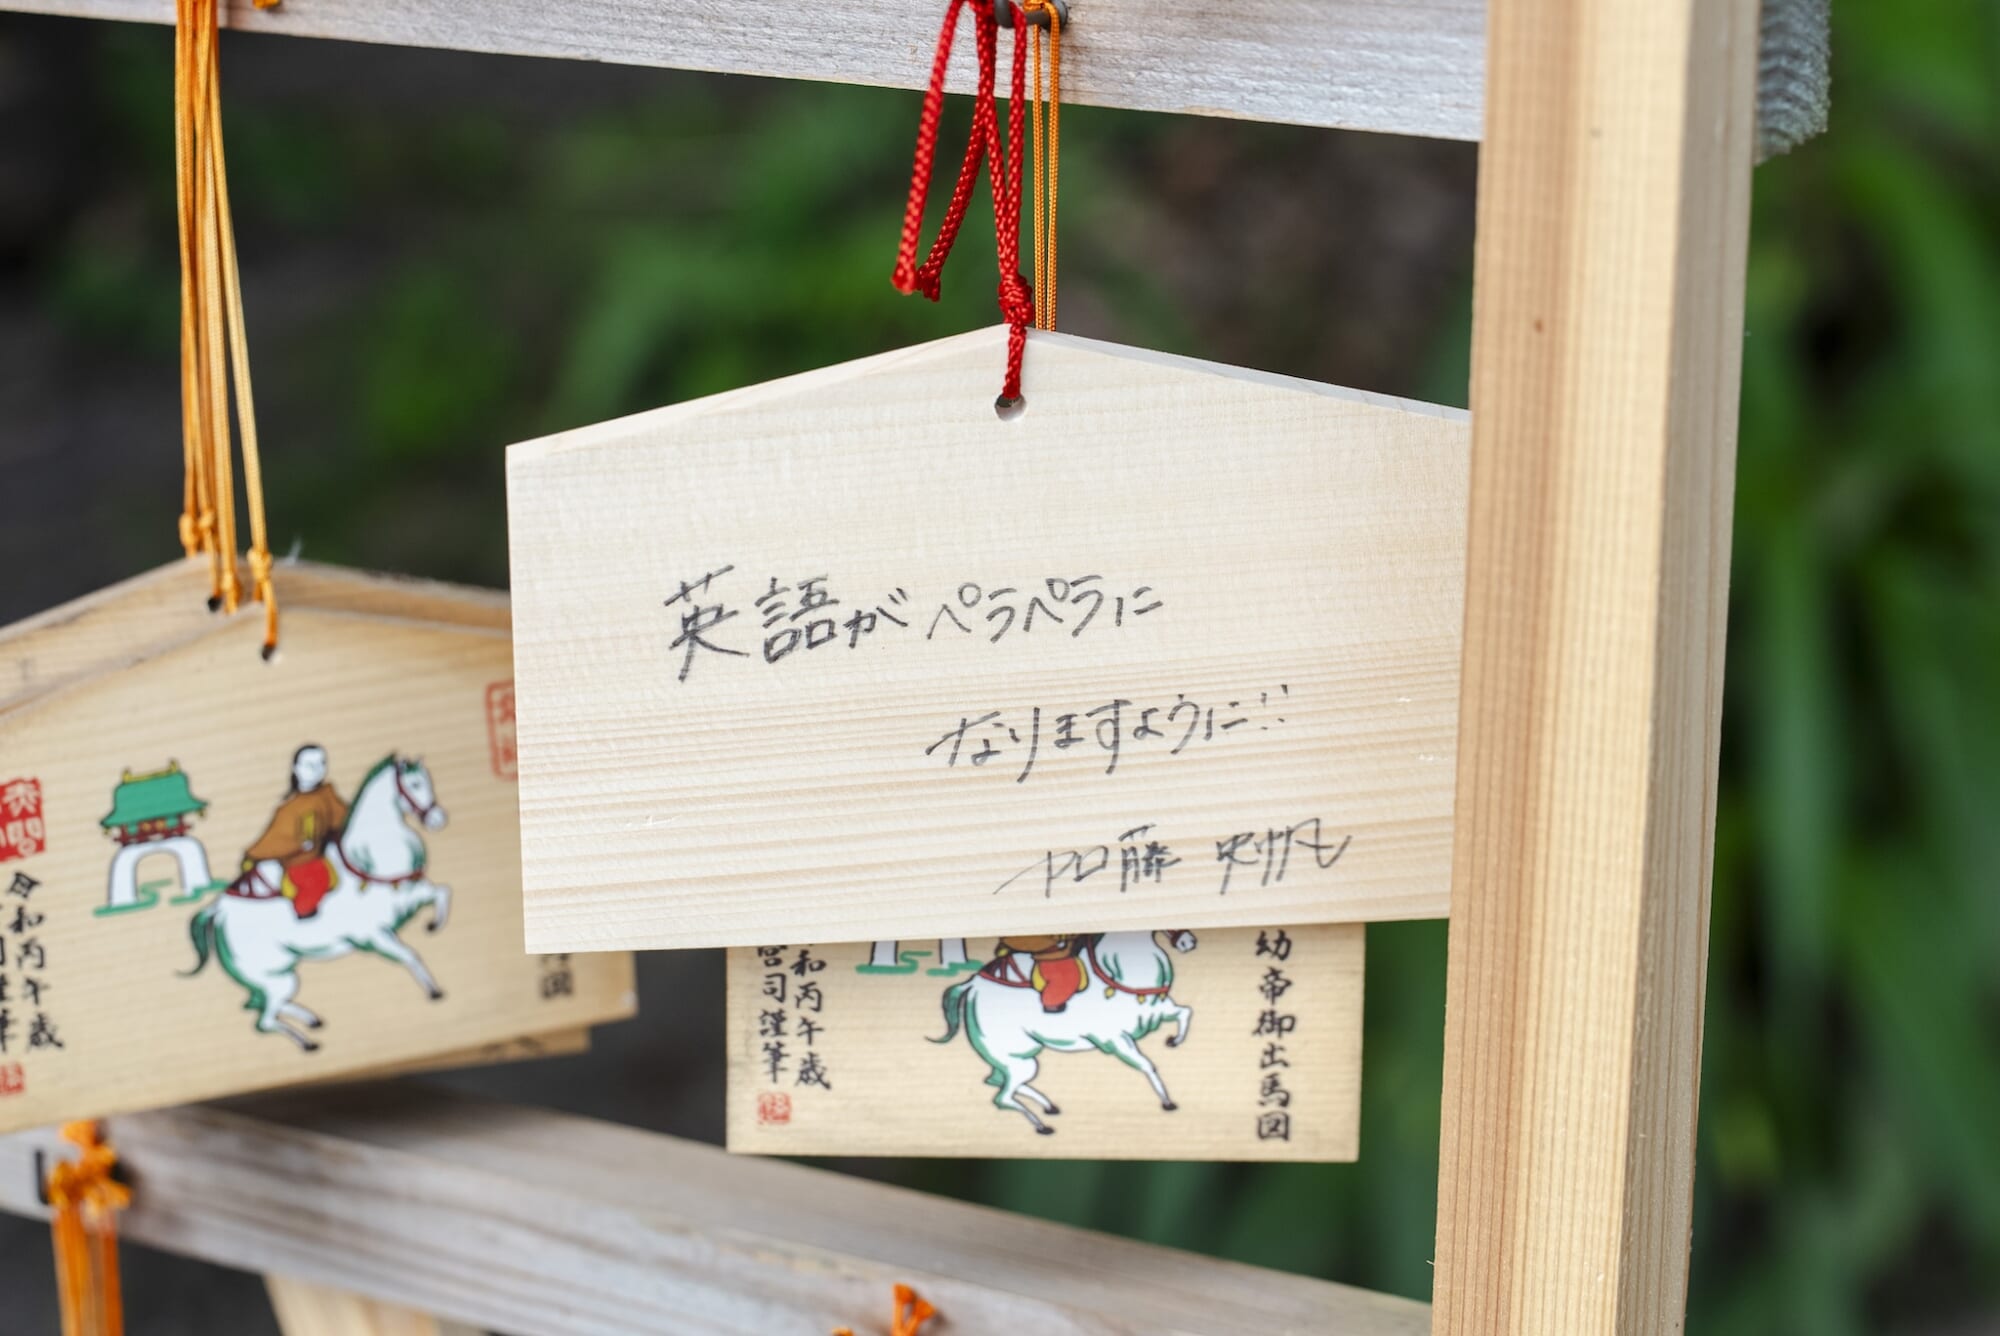 英語がペラペラに
なりますように!!
加藤 史帆
令和丙午歳
宮司謹筆
幼帝御出馬図
和丙午歳
宮司謹筆